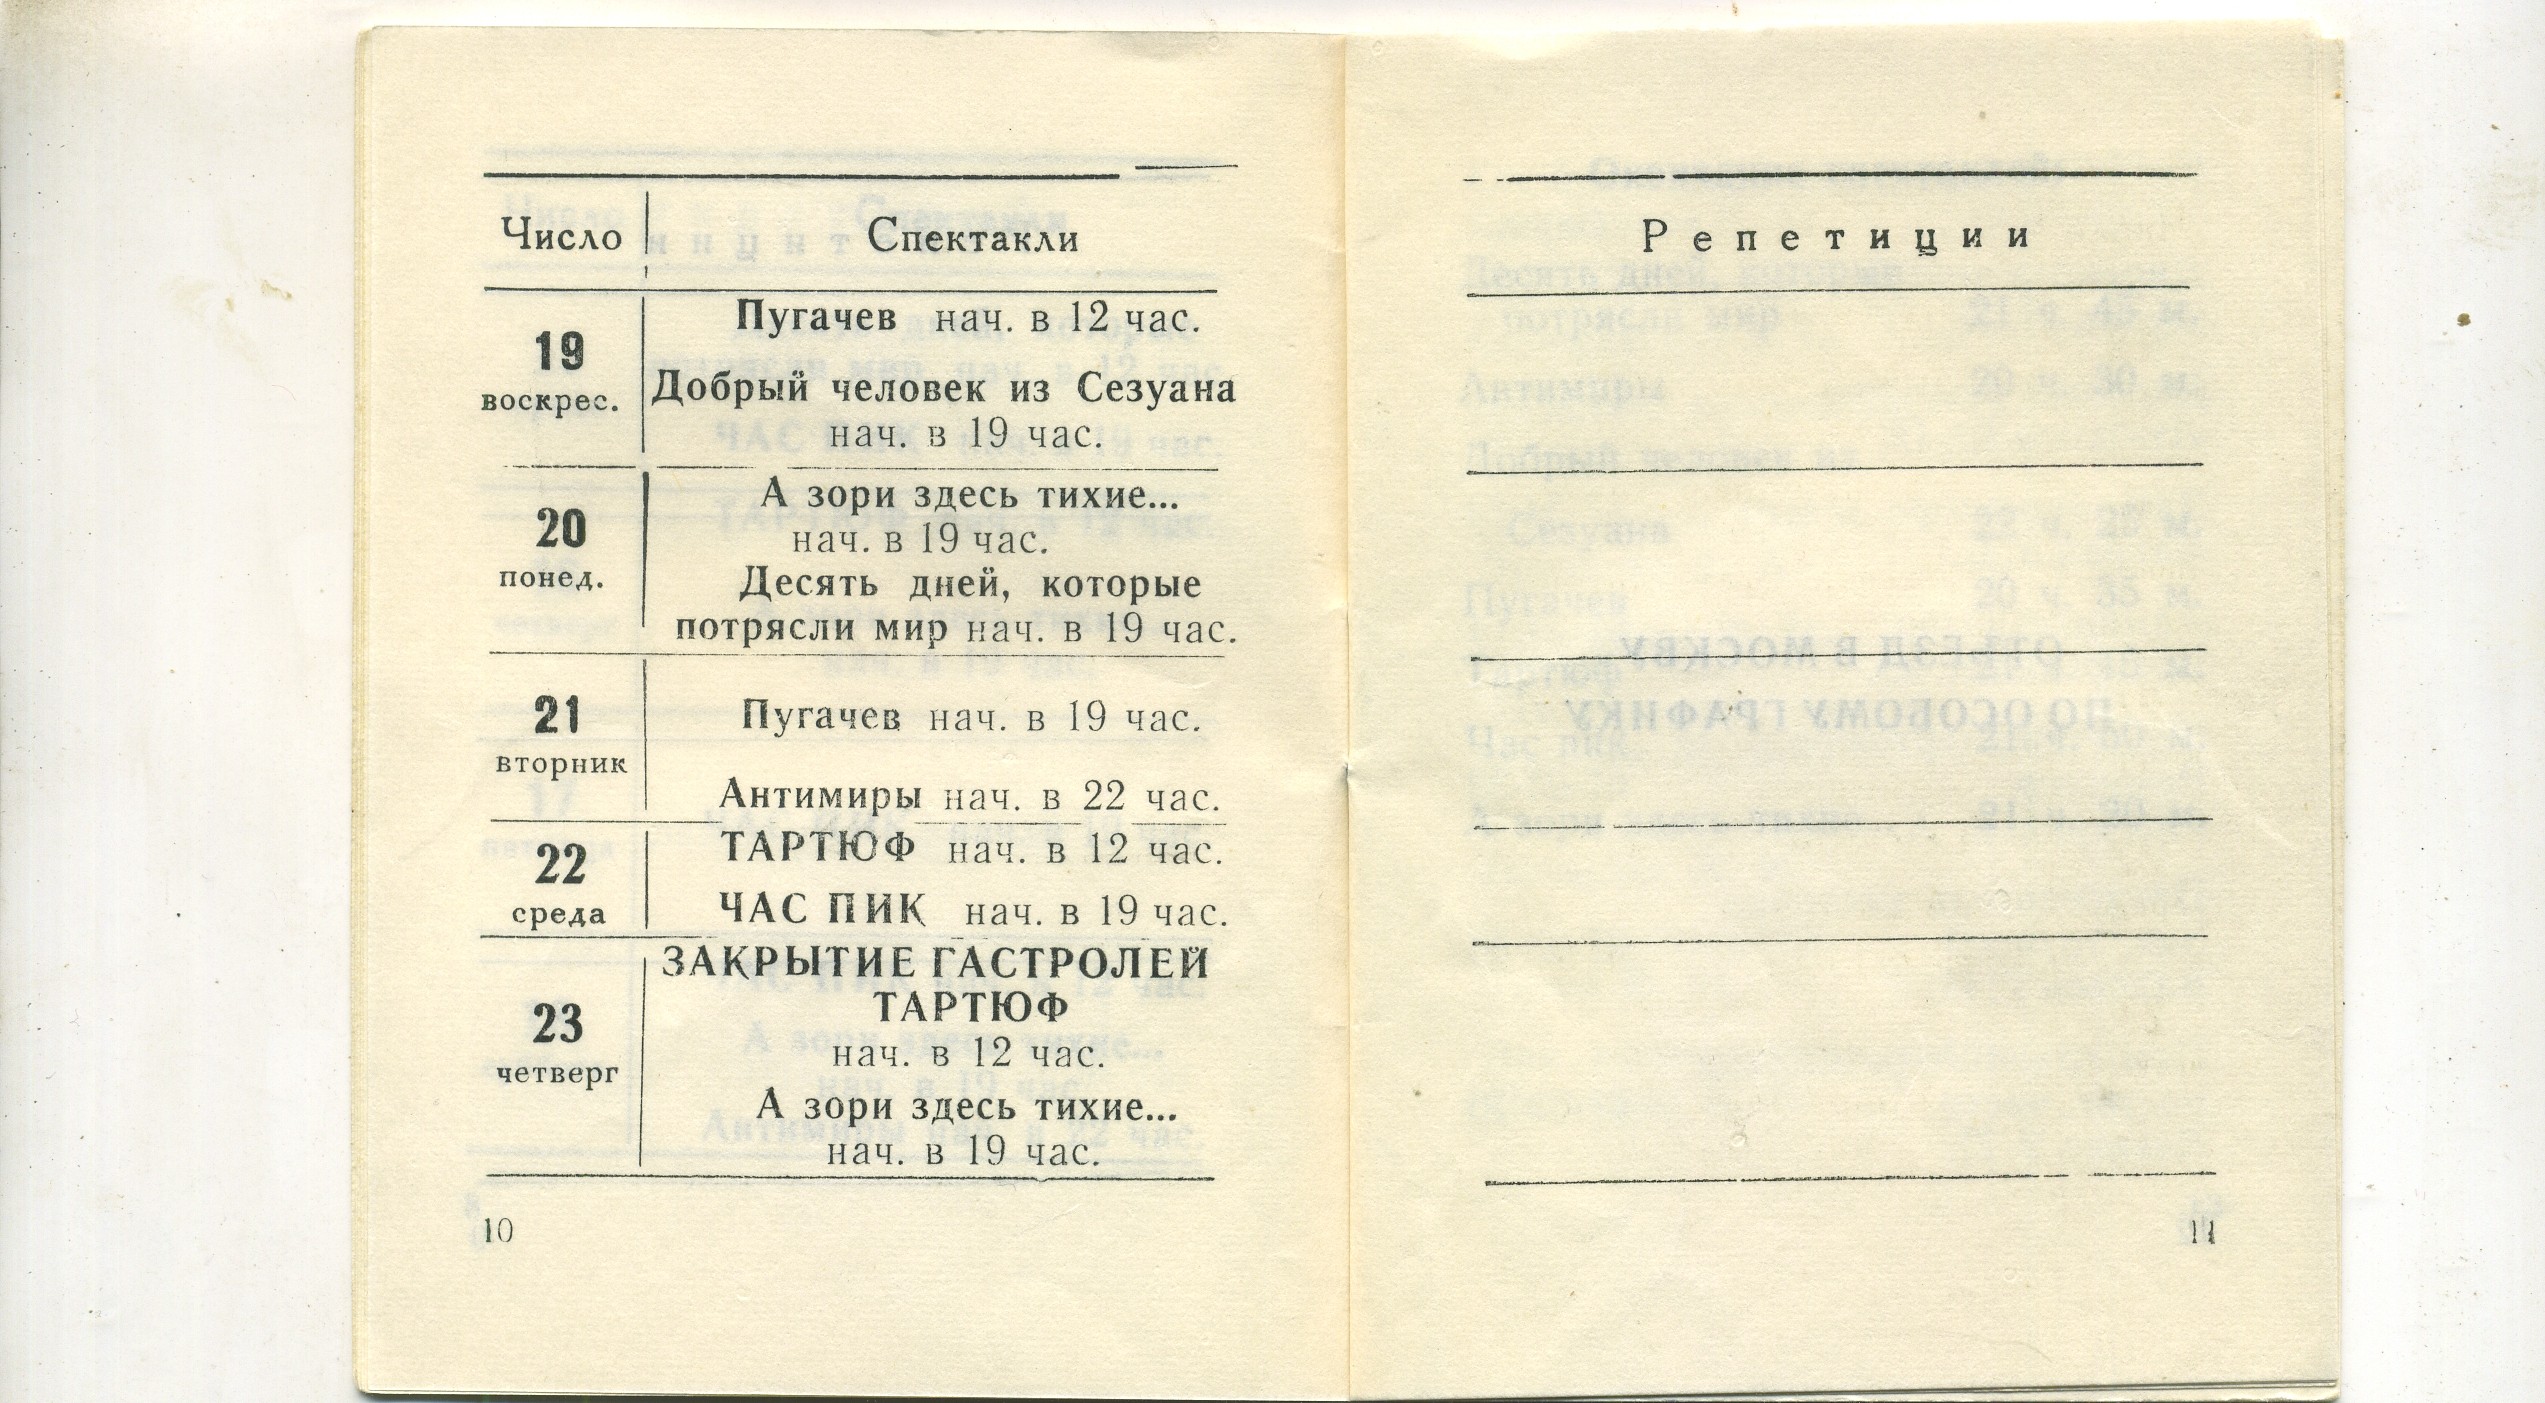 Число Спектакли
19 воскрес.
Пугачев нач. в 12 час.
Добрый человек из Сезуана
нач. в 19 час.
20 понед.
А зори здесь тихие...
нач. в 19 час.
Десять дней, которые
потрясли мир нач. в 19 час.
21 вторник
Пугачев нач. в 19 час.
Антимиры нач. в 22 час.
22 среда
ТАРТЮФ нач. в 12 час.
ЧАС ПИК нач. в 19 час.
23 четверг
ЗАКРЫТИЕ ГАСТРОЛЕЙ
ТАРТЮФ
нач. в 12 час.
А зори здесь тихие...
нач. в 19 час.
10
Репетиции
11